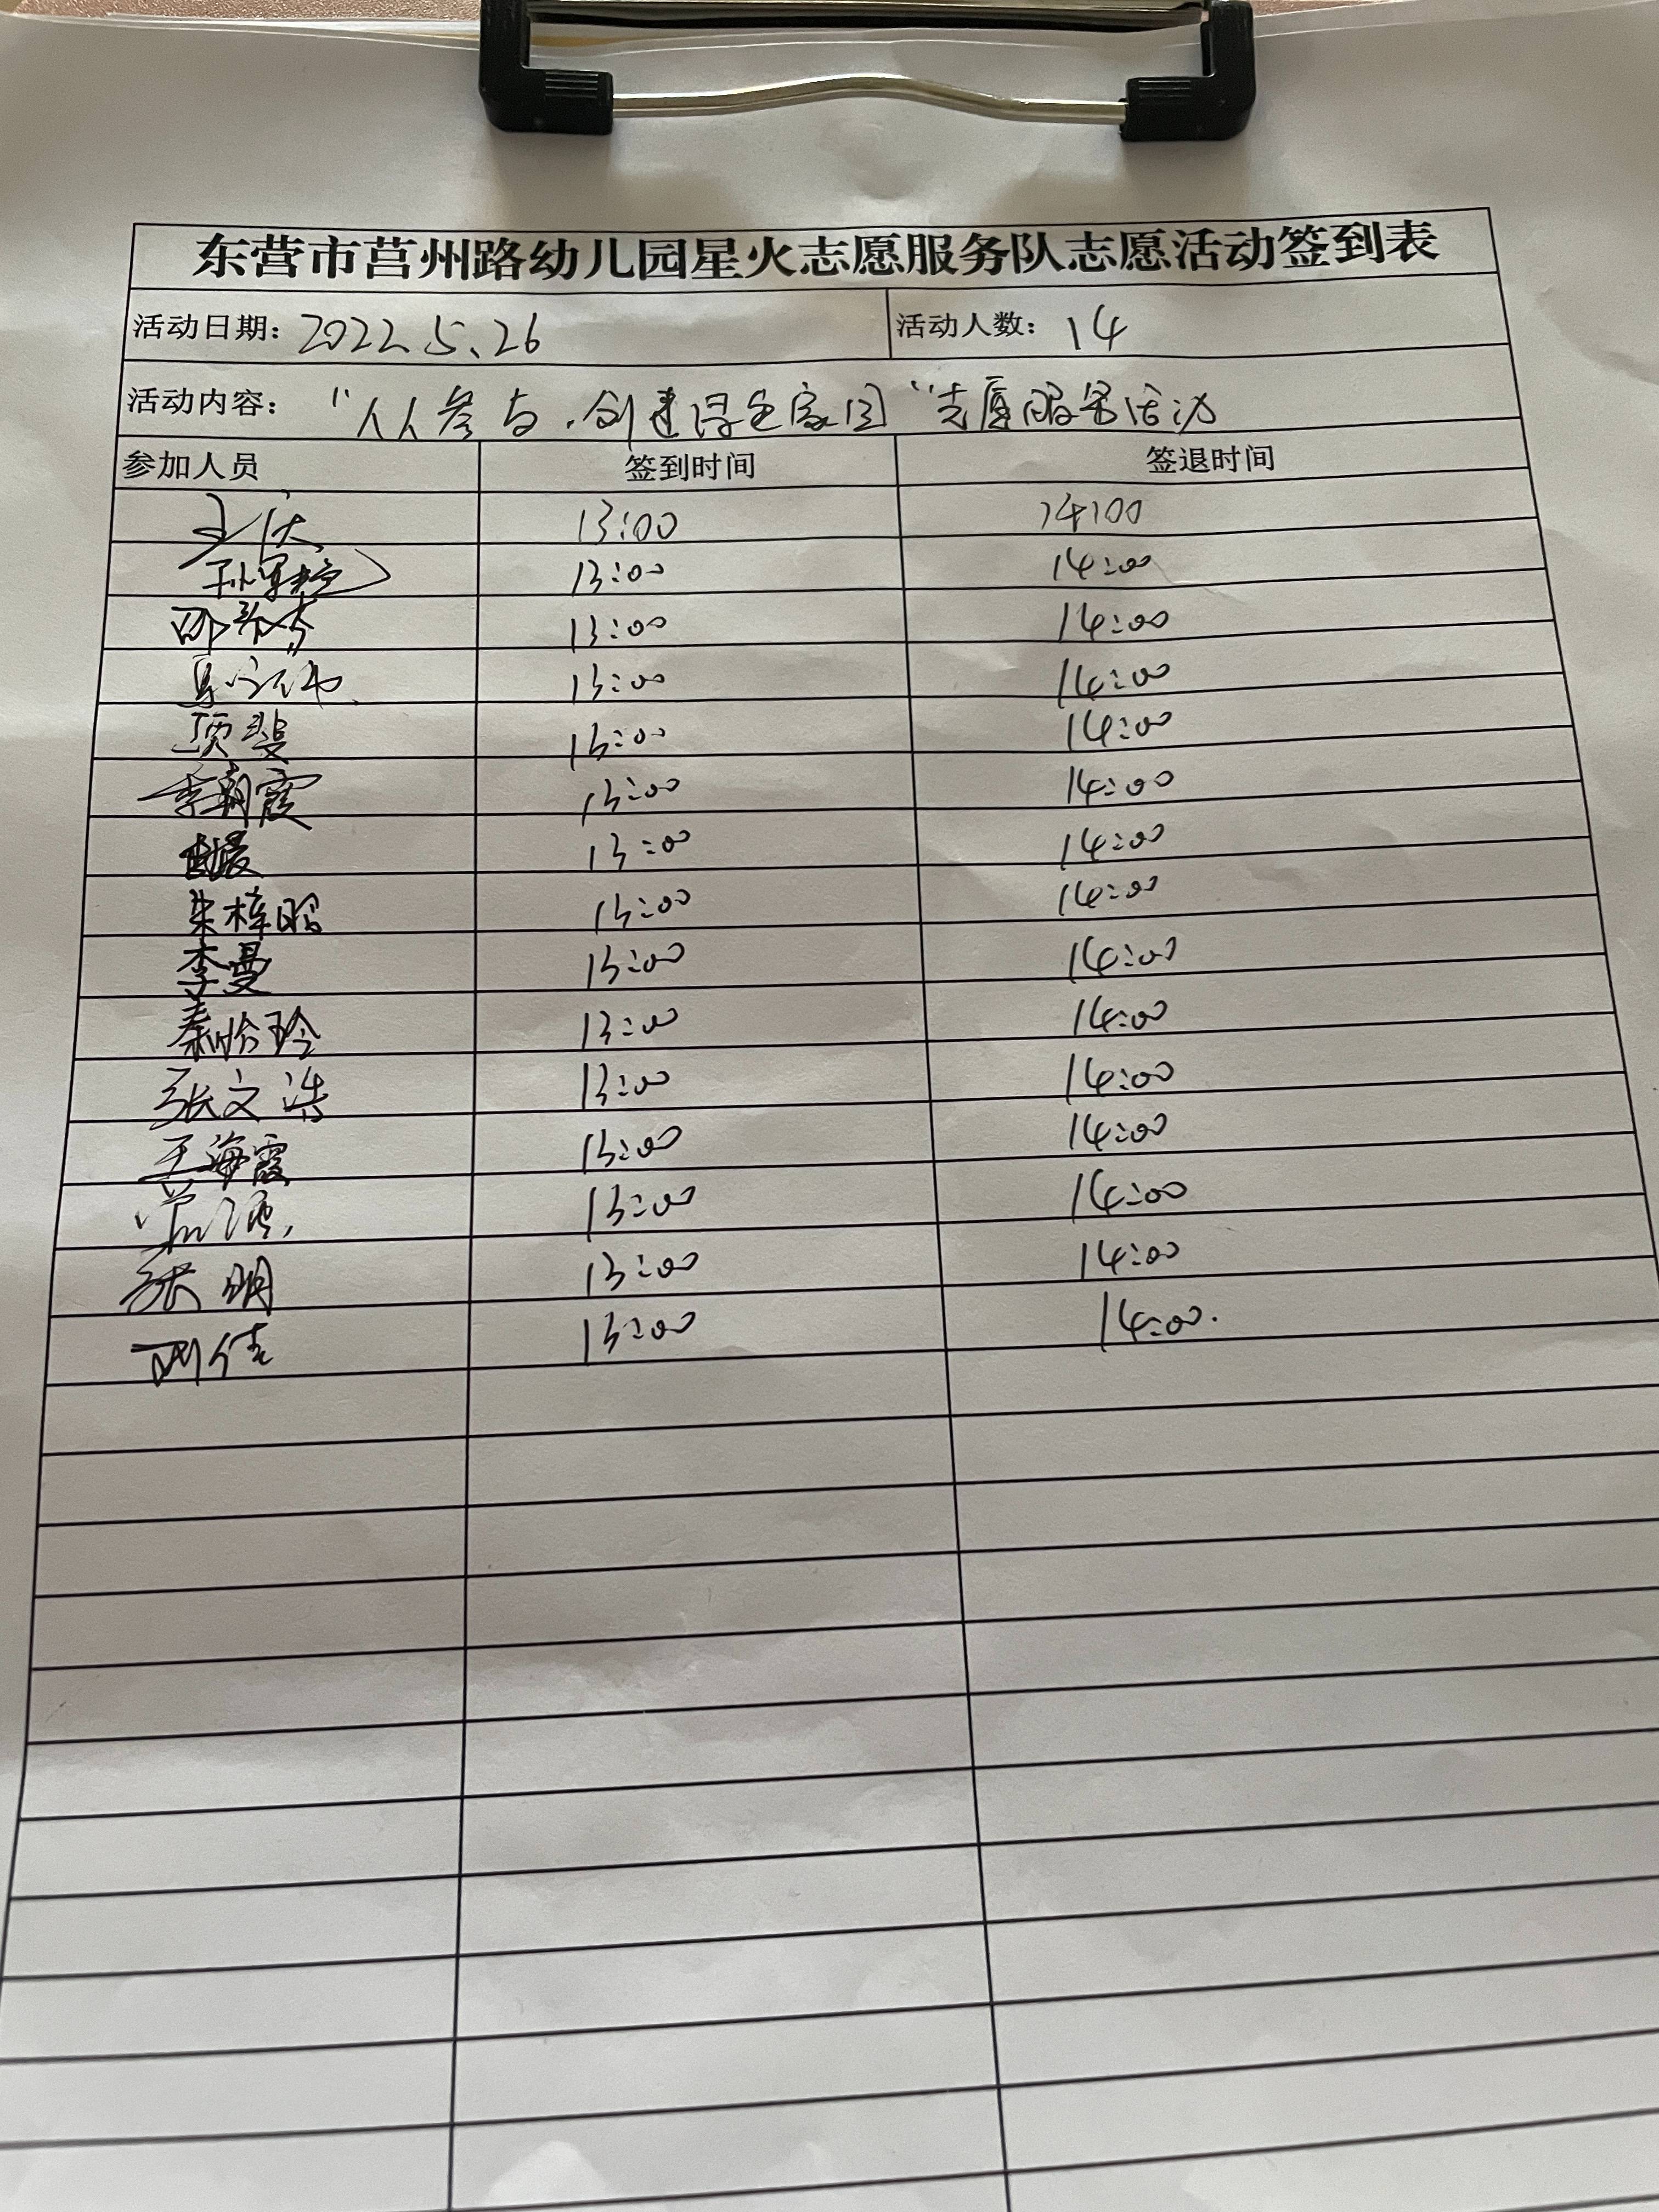 东营市莒州路幼儿园星火志愿服务队志愿活动签到表
活动日期：2022.5.26 活动人数：14
活动内容："人人参与.创建绿色家园"志愿服务活动
参加人员 签到时间 签退时间
13:00 14:00
13:00 14:00
13:00 14:00
13:00 14:00
项斐 13:00 14:00
李朝霞 13:00 14:00
13:00 14:00
朱梓昭 13:00 14:00
李曼 13:00 14:00
秦怡玲 13:00 14:00
张文浩 13:00 14:00
王海霞 13:00 14:00
13:00 14:00
张明 13:00 14:00
13:00 14:00.